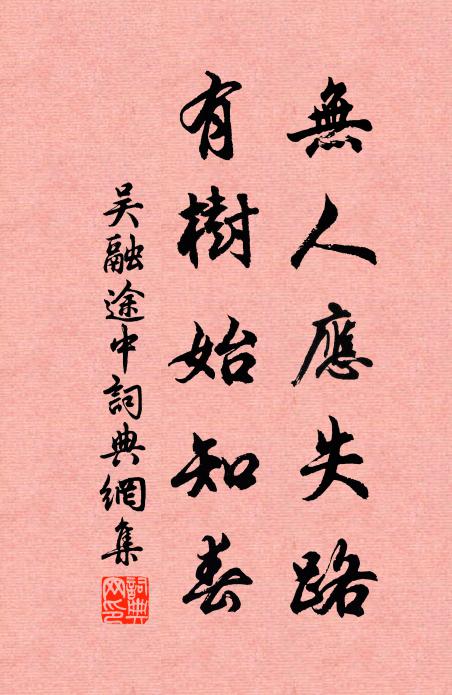 無人應失路
有樹始知春
吳融途中詞典網集
詞典網印